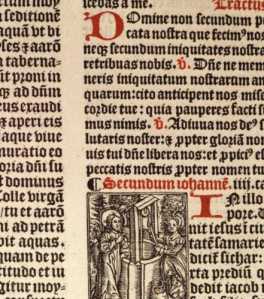 seditione
aquã vt di
yses ⁊ aarõ
taberna-
st proni in
eus exaudi
⁊ aperi eis
aque viue
nuratio eo
oria dñi su
t dominus
olle virgã
/ tu et aarõ
ad petrã
pit aquas.
quam de pe
titudo et iu
gitur moy-
icebas a me. Tractus
Domine non secundum pec
cata nostra que fecim⁹ nos
neqꝫ secundum iniquitates nostras
retribuas nobis. ℣. Dñe ne memi
neris iniquitatum nostrarum an
quarum: cito anticipent nos mise
cordie tue: quia pauperes facti su
mus nimis. ℣. Adiuua nos de⁹ s
lutaris noster: ⁊ ꝓpter gloriã nom
nis tui dñe libera nos: et ꝓpici⁹ es
peccatis nostris ꝓpter nomen tu
¶ Secundum iohannẽ. iiij. ca
In illo
pore.
nit iesus i
tatẽ samarie
dicit̃ sichar:
xta prediũ
dedit iacob